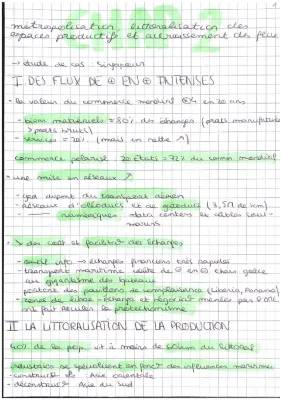 CHAP 2
métropolisation, littoralisation des
espaces productifs et accroissement des flux
→ étude de cas Singapour
I DES FLUX DE ⊕ EN ⊕ INTENSES
- la valeur du commerce mondial en 20 ans
- biens matériels = 80% des échanges (produits manufacturés
> produits bruts)
- services = 20% (mais en nette ↗)
commerce polarisé 20 États = 77% du comm mondial
- une mise en réseaux ↗
du transport aérien
- réseaux d'oléoducs et de gazoducs (3,5M de km)
- numériques data centers et câbles sous-
marins
- ↘ des coûts et facilité des échanges
info → échanges financiers très rapides
- transport maritime coûte de ⊖ en ⊖ cher grâce
au gigantisme des bateaux
pavillons de complaisance (Liberia, Panama)
- zones de libre-échange et négociat° menées par OMC
ont fait reculer le protectionnisme
II LA LITTORALISATION DE LA PRODUCTION
de la pop. vit à moins de du littoral
industries se spécialisent en fonct° des influences maritimes
- Asie orientale
- Asie du Sud